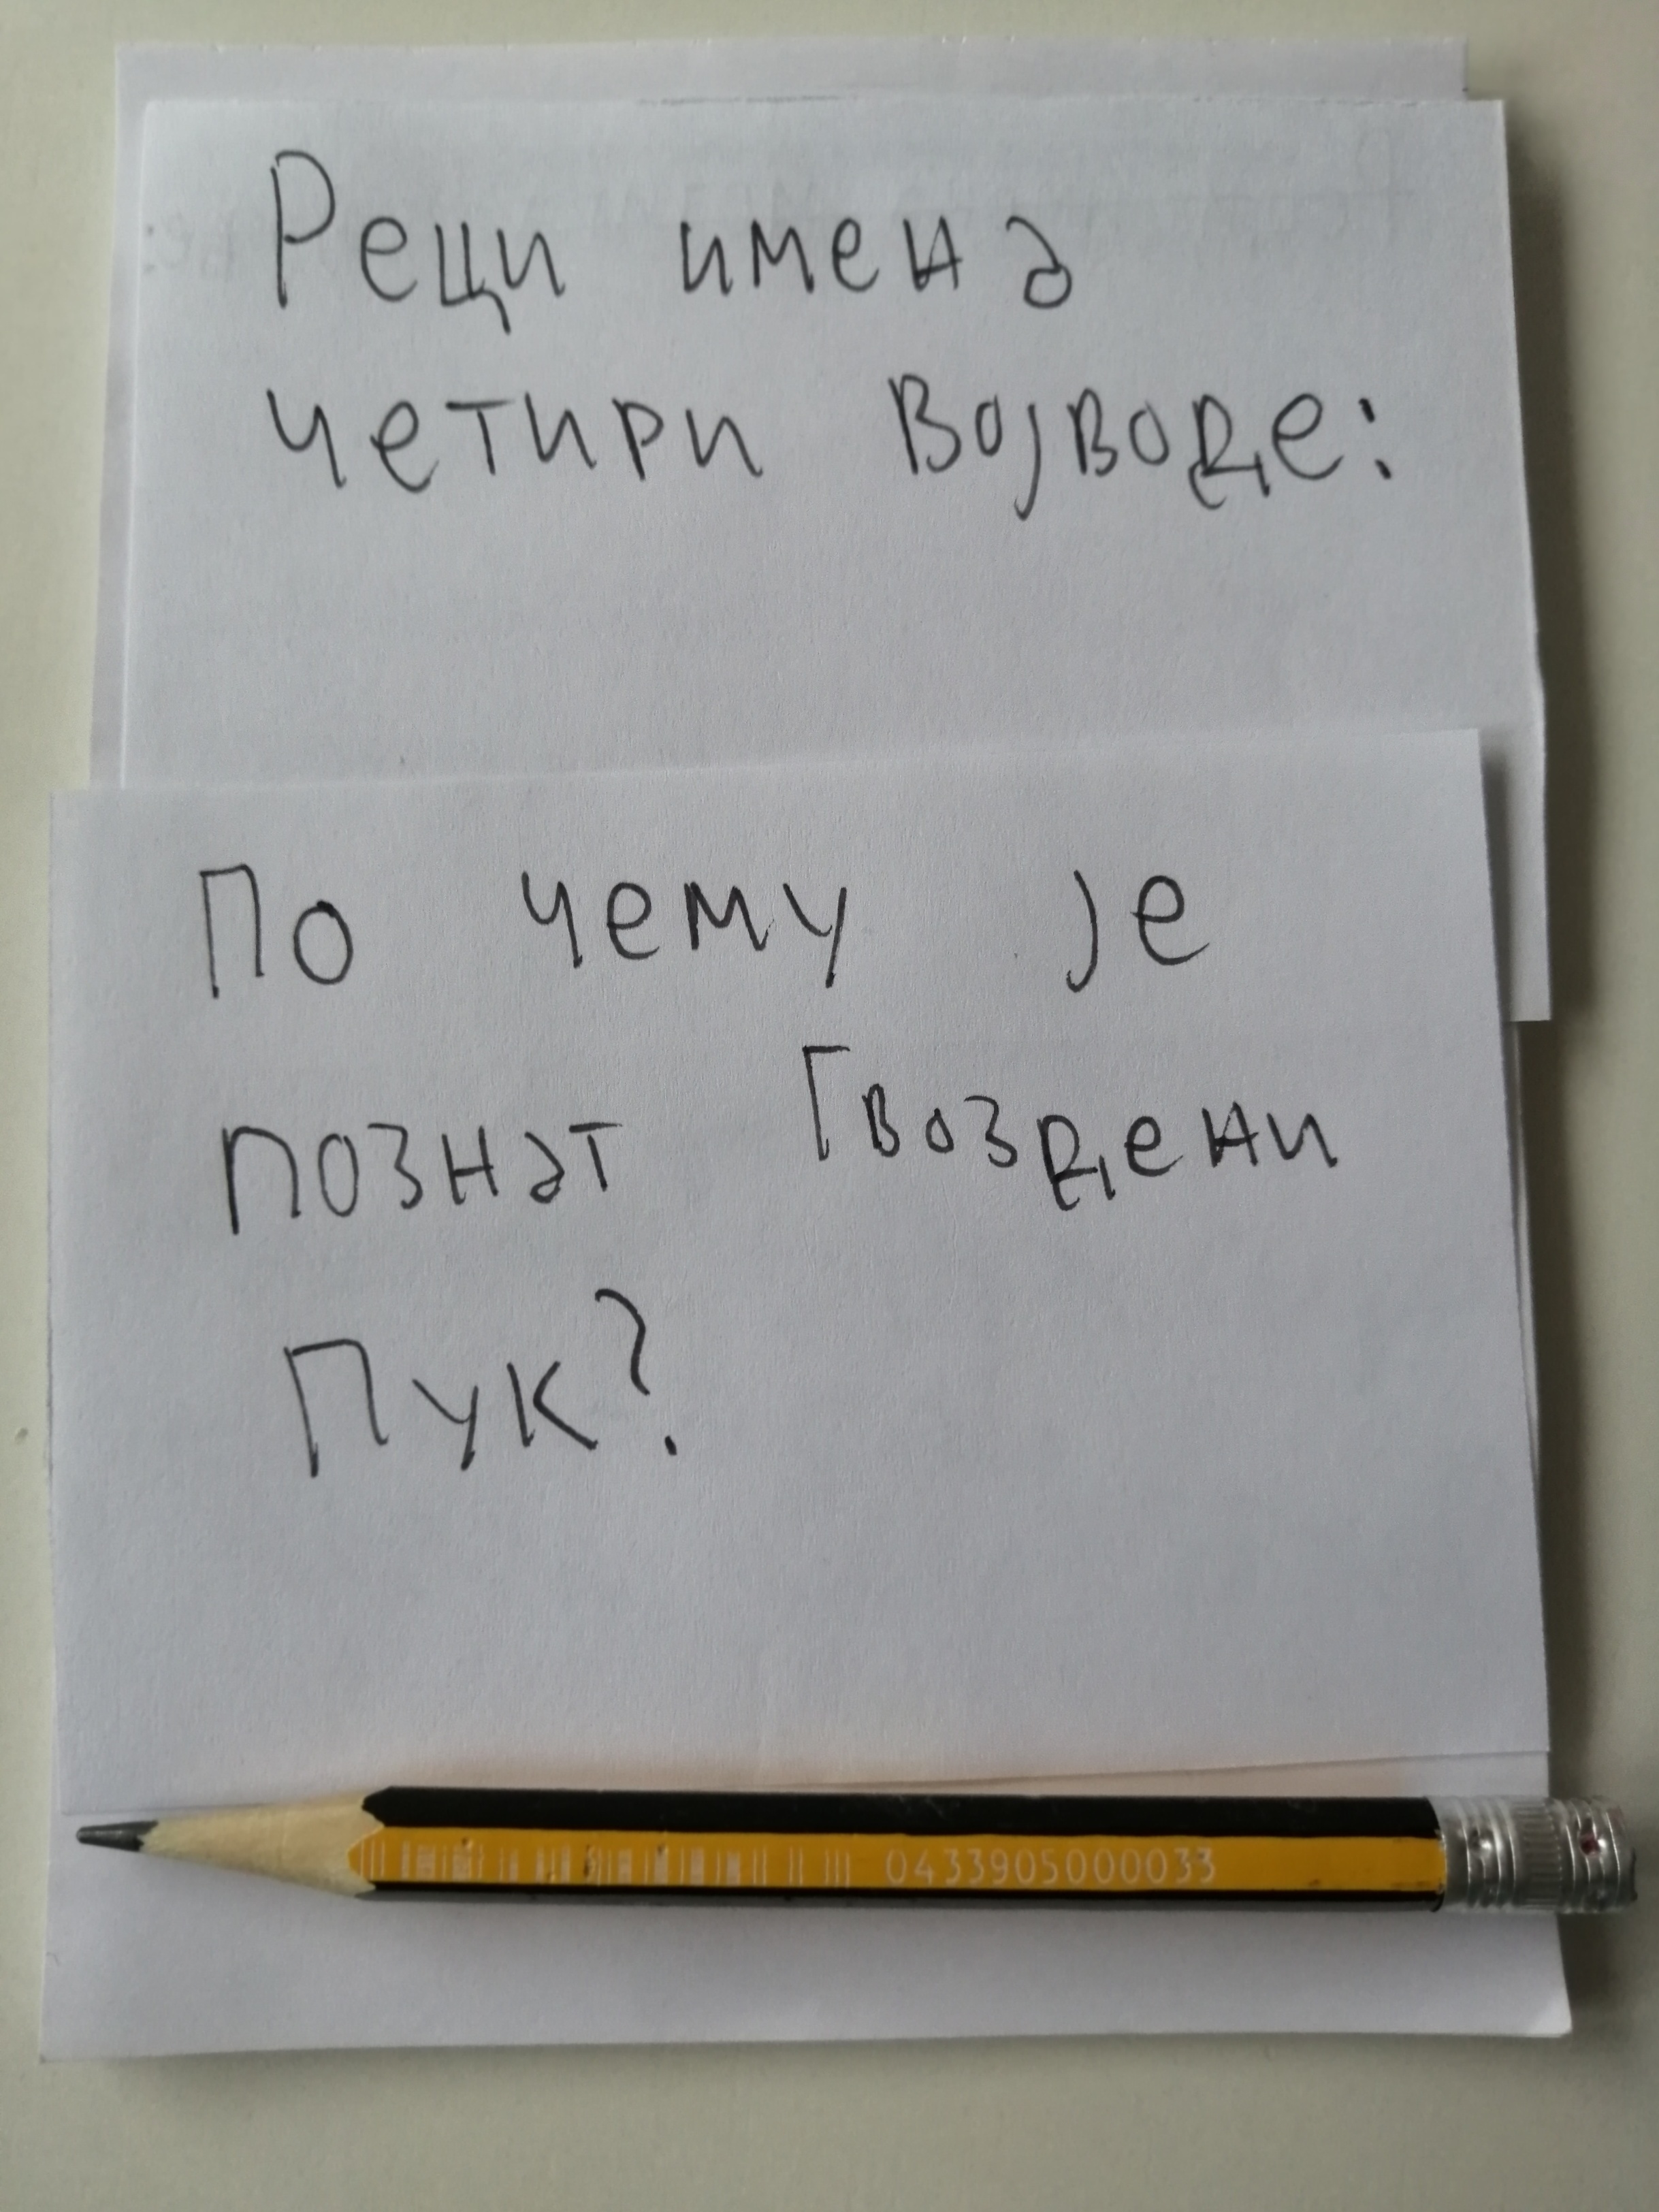 Реци имена
четири Војводе:
По чему је
познат Гвоздени
Пук?
0433905000033